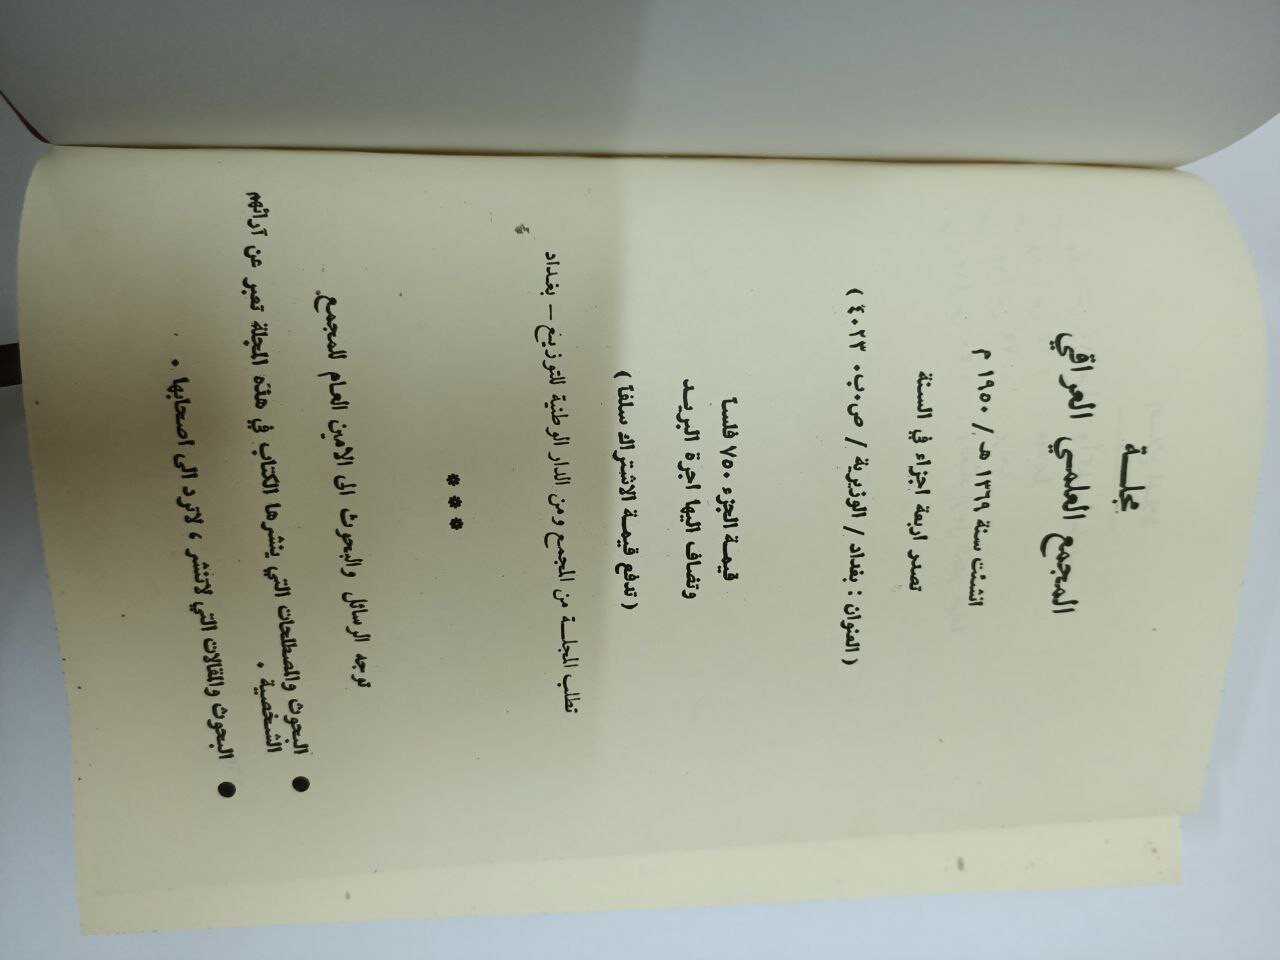 مجلـــة
المجمع العلمـي العراقي
انشئت سنة ١٣٦٩ هـ / ١٩٥٠ م
تصدر اربعة اجزاء في السنة
( العنوان : بغداد / الوزيرية / ص٠ب٠ ٤٠٢٣ )
قيمـة الجزء ٧٥٠ فلسا
وتضاف اليها اجرة البريـد
( تدفع قيمـة الاشتراك سلفا )
تطلب المجلـة من المجمع ومن الدار الوطنية للتوزيـع ــ بغـداد
***
توجه الرسائل والبحوث الى الامين العـام للمجمع.
● البحوث والمصطلحات التي ينشرها الكتاب في هذه المجلة تعبر عن آرائهم
الشخصية .
● البحوث والمقالات التي لاتنشر ، لاترد الى اصحابها .